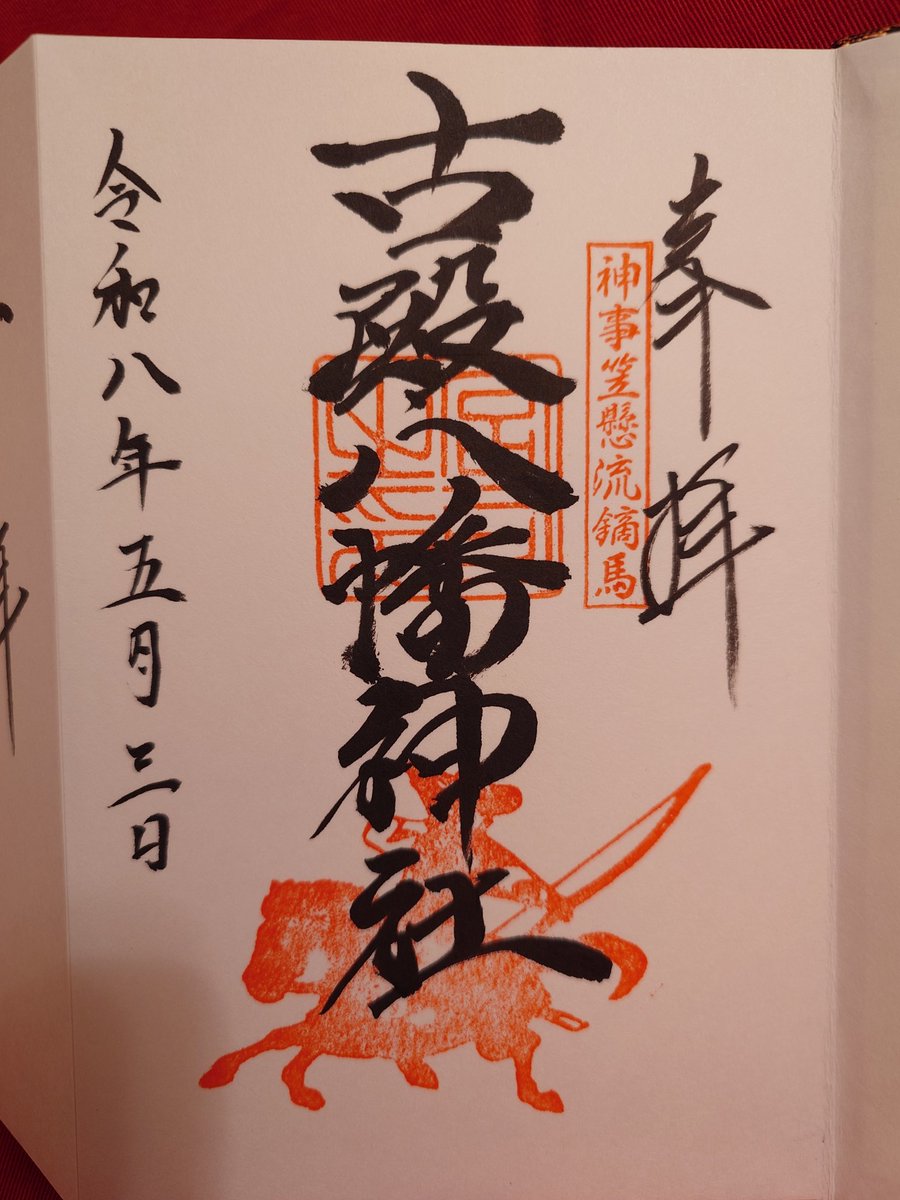 奉拝
神事笠懸流鏑馬
古殿八幡神社
令和八年五月三日